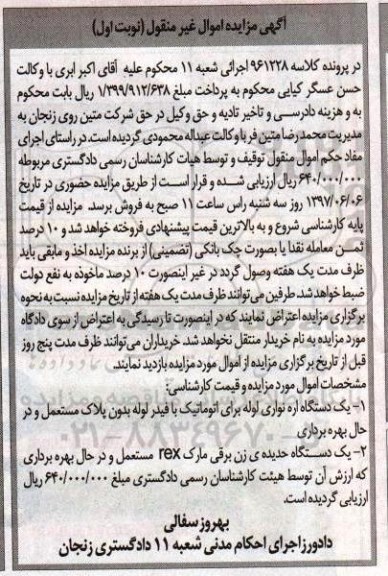 آگهی مزایده اموال غیر منقول (نوبت اول)
در پرونده کلاسه ۹۶۱۲۲۸ اجرائی شعبه ۱۱ محکوم علیه آقای اکبر ابری با وکالت
حسن عسگر کیایی محکوم به پرداخت مبلغ ۱/۳۹۹/۹۱۲/۶۳۸ ریال بابت محکوم
به و هزینه دادرسی و تاخیر تادیه و حق وکیل در حق شرکت متین روی زنجان به
مدیریت محمدرضا متین فر با وکالت عبداله محمودی گردیده است. در راستای اجرای
مفاد حکم اموال منقول توقیف و توسط هیات کارشناسان رسمی دادگستری مربوطه
۶۴۰/۰۰۰/۰۰۰ ریال ارزیابی شده و قرار است از طریق مزایده حضوری در تاریخ
۱۳۹۷/۰۶/۰۶ روز سه شنبه راس ساعت ۱۱ صبح به فروش برسد. مزایده از قیمت
پایه کارشناسی شروع و به بالاترین قیمت پیشنهادی فروخته خواهد شد و ۱۰ درصد
ثمن معامله نقدا یا بصورت چک بانکی (تضمینی) از برنده مزایده اخذ و مابقی باید
ظرف مدت یک هفته وصول گردد در غیر اینصورت ۱۰ درصد ماخوذه به نفع دولت
ضبط خواهد شد. طرفین می‌توانند ظرف مدت یک هفته از تاریخ مزایده نسبت به نحوه
برگزاری مزایده اعتراض نمایند که در اینصورت تا رسیدگی به اعتراض از سوی دادگاه
مورد مزایده به نام خریدار منتقل نخواهد شد. خریداران می‌توانند ظرف مدت پنج روز
قبل از تاریخ برگزاری مزایده از اموال مورد مزایده بازدید نمایند.
مشخصات اموال مورد مزایده و قیمت کارشناسی:
۱- یک دستگاه اره نواری لوله برای اتوماتیک با فیدر لوله بدون پلاک مستعمل و در
حال بهره برداری
۲- یک دستگاه حدیده ی زن برقی مارک rex مستعمل و در حال بهره برداری
که ارزش آن توسط هیئت کارشناسان رسمی دادگستری مبلغ ۶۴۰/۰۰۰/۰۰۰ ریال
ارزیابی گردیده است.
بهروز سفالی
دادورز اجرای احکام مدنی شعبه ۱۱ دادگستری زنجان
۰۲۱-۸۸۳۴۹۶۷۰